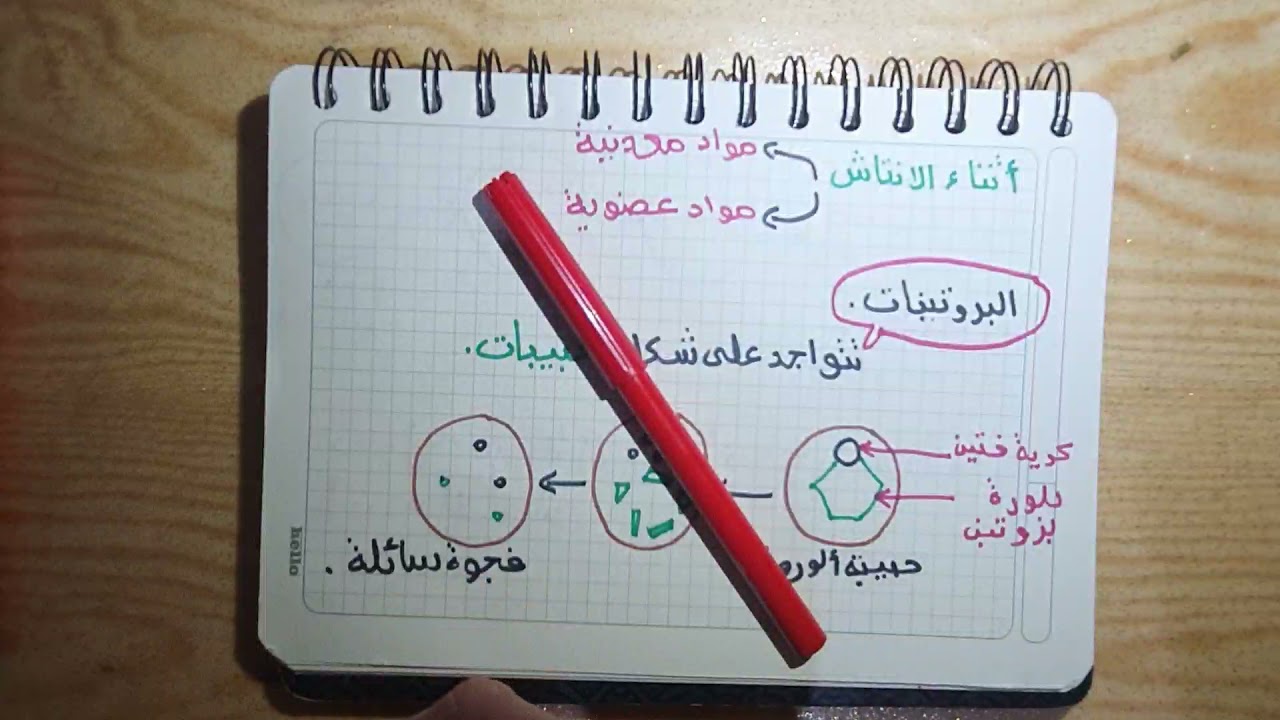 أثناء الانتاش
مواد معدنية
مواد عضوية
البروتينات.
تتواجد على شكل
كرية فتين
بلورة
بروتين
حبيبة
فجوة سائلة.
hello